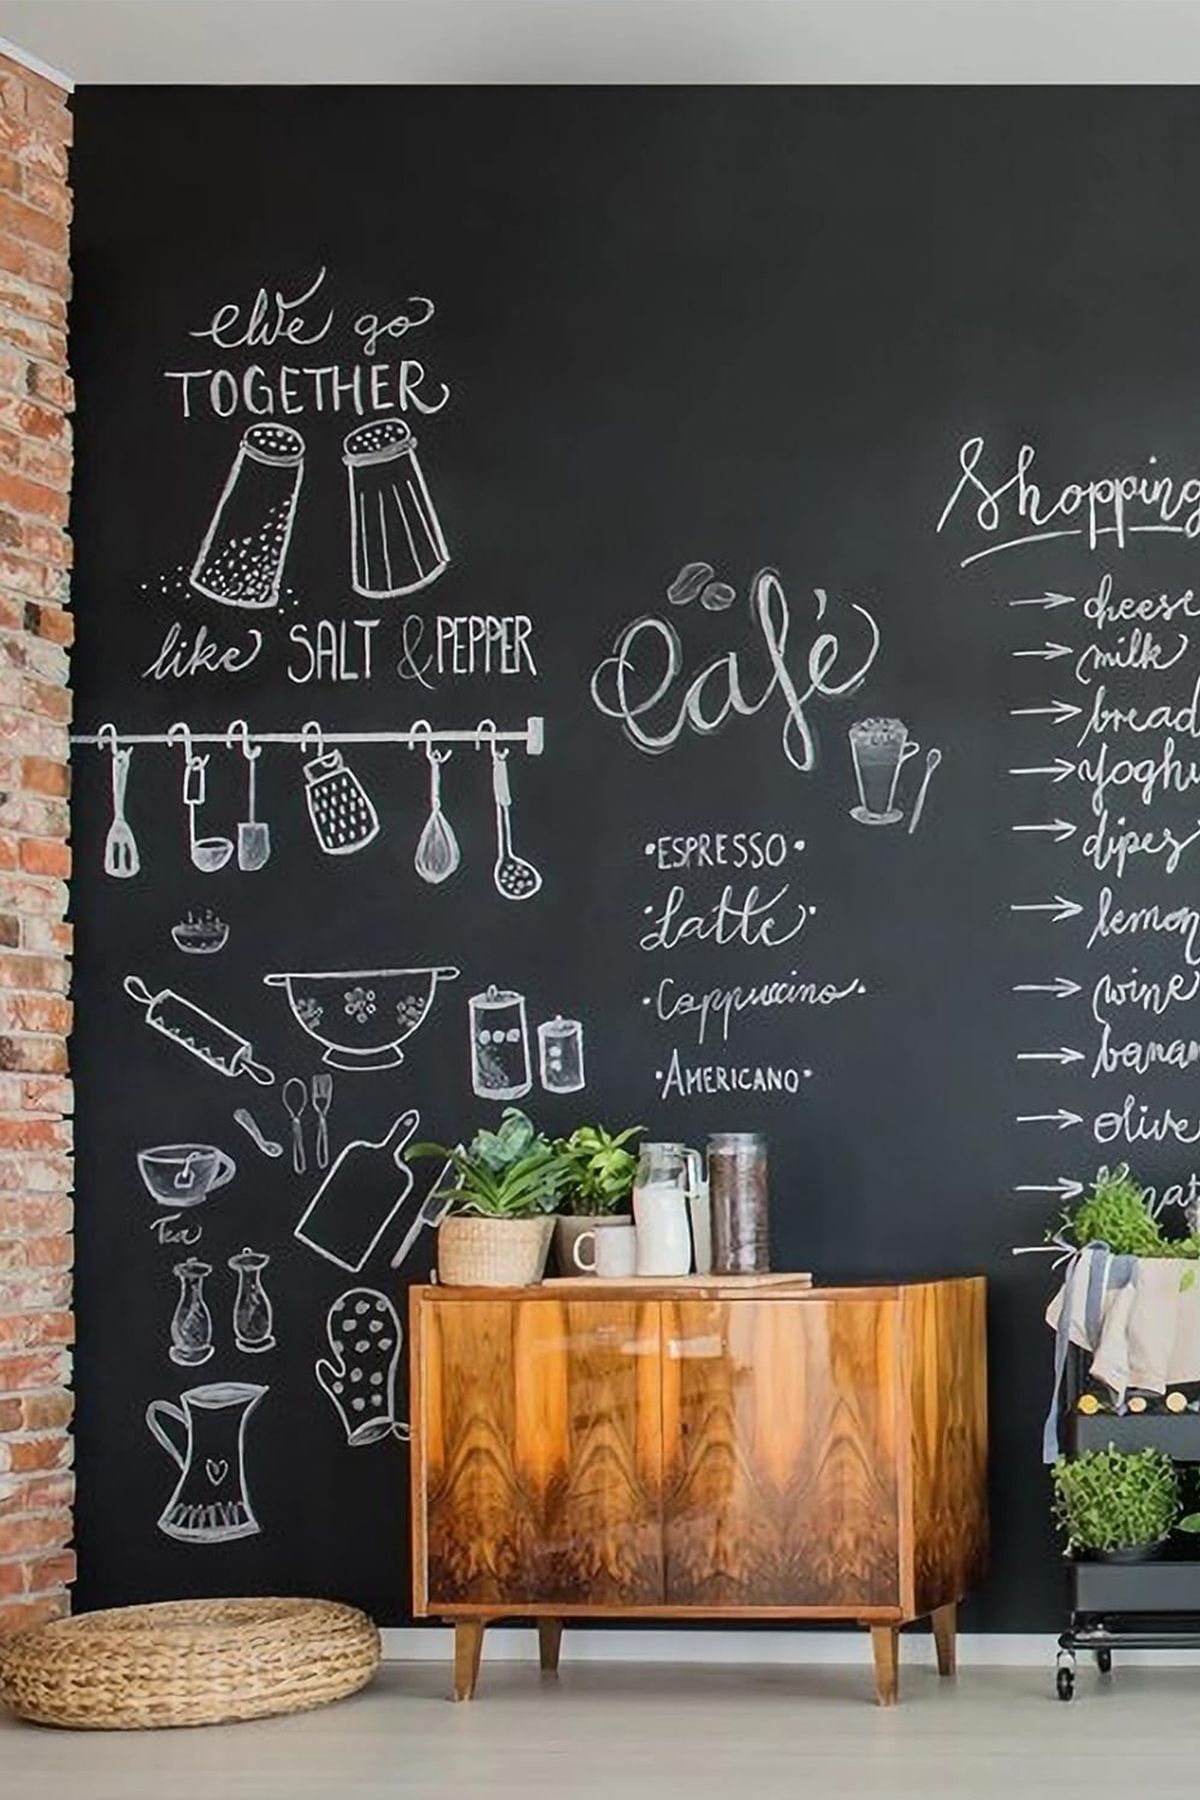 We go
TOGETHER
like SALT & PEPPER
Tea
Café
•ESPRESSO•
•Latte•
•Cappuccino•
•AMERICANO•
Shopping
→ cheese
→ milk
→ bread
→ yoghu
→ dipes
→ lemon
→ wine
→ banan
→ olive